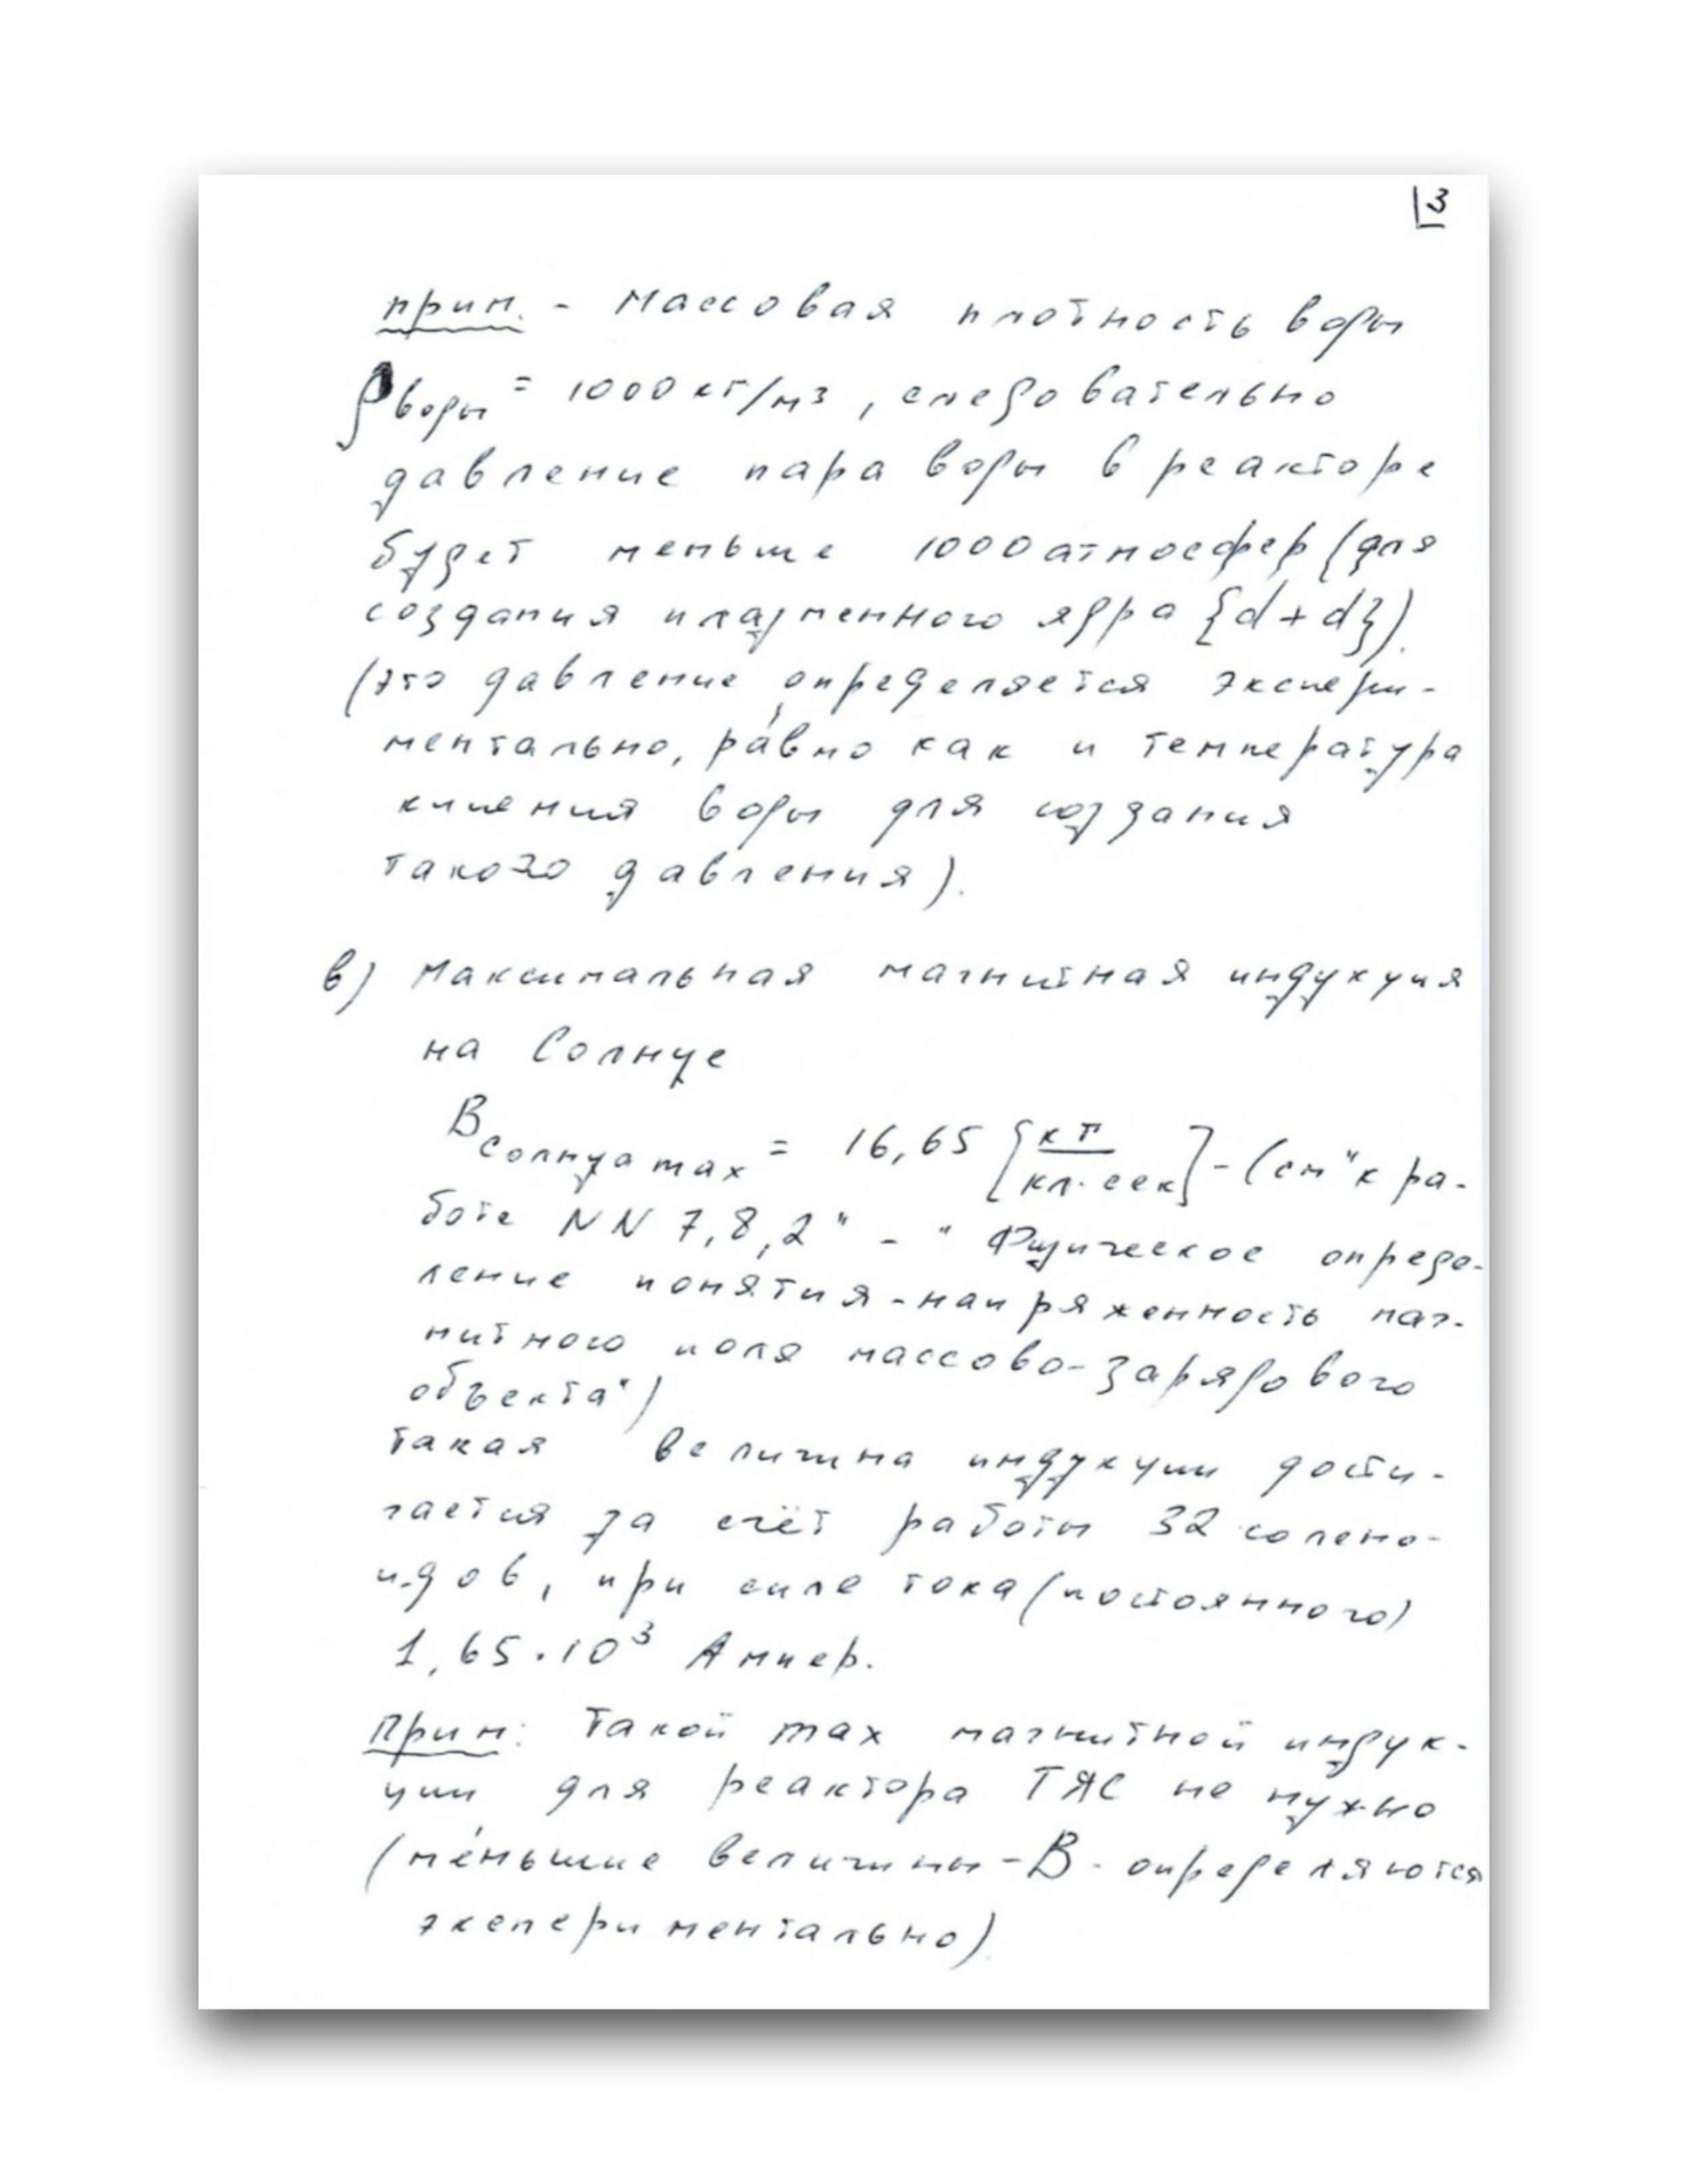 3
прим. - Массовая плотность воды
ρ воды = 1000 кг/м3, следовательно
давление пара воды в реакторе
будет меньше 1000 атмосфер (для
создания плазменного ядра {d+d}).
(это давление определяется экспери-
ментально, ра́вно как и температура
кипения воды для создания
такого давления).
в) Максимальная магнитная индукция
на Солнце
B солнца max = 16,65 [кг/кл·сек] - (см "к ра-
боте NN 7,8,2" - "Физическое опреде-
ление понятия - напряженность маг-
нитного поля массово-зарядового
объекта")
такая величина индукции дости-
гается за счёт работы 32 солено-
идов, при силе тока (постоянного)
1,65·10³ Ампер.
Прим: Такой max магнитной индук-
ции для реактора ТЯС не нужно
(ме́ньшие величины - B - определяются
экспериментально)